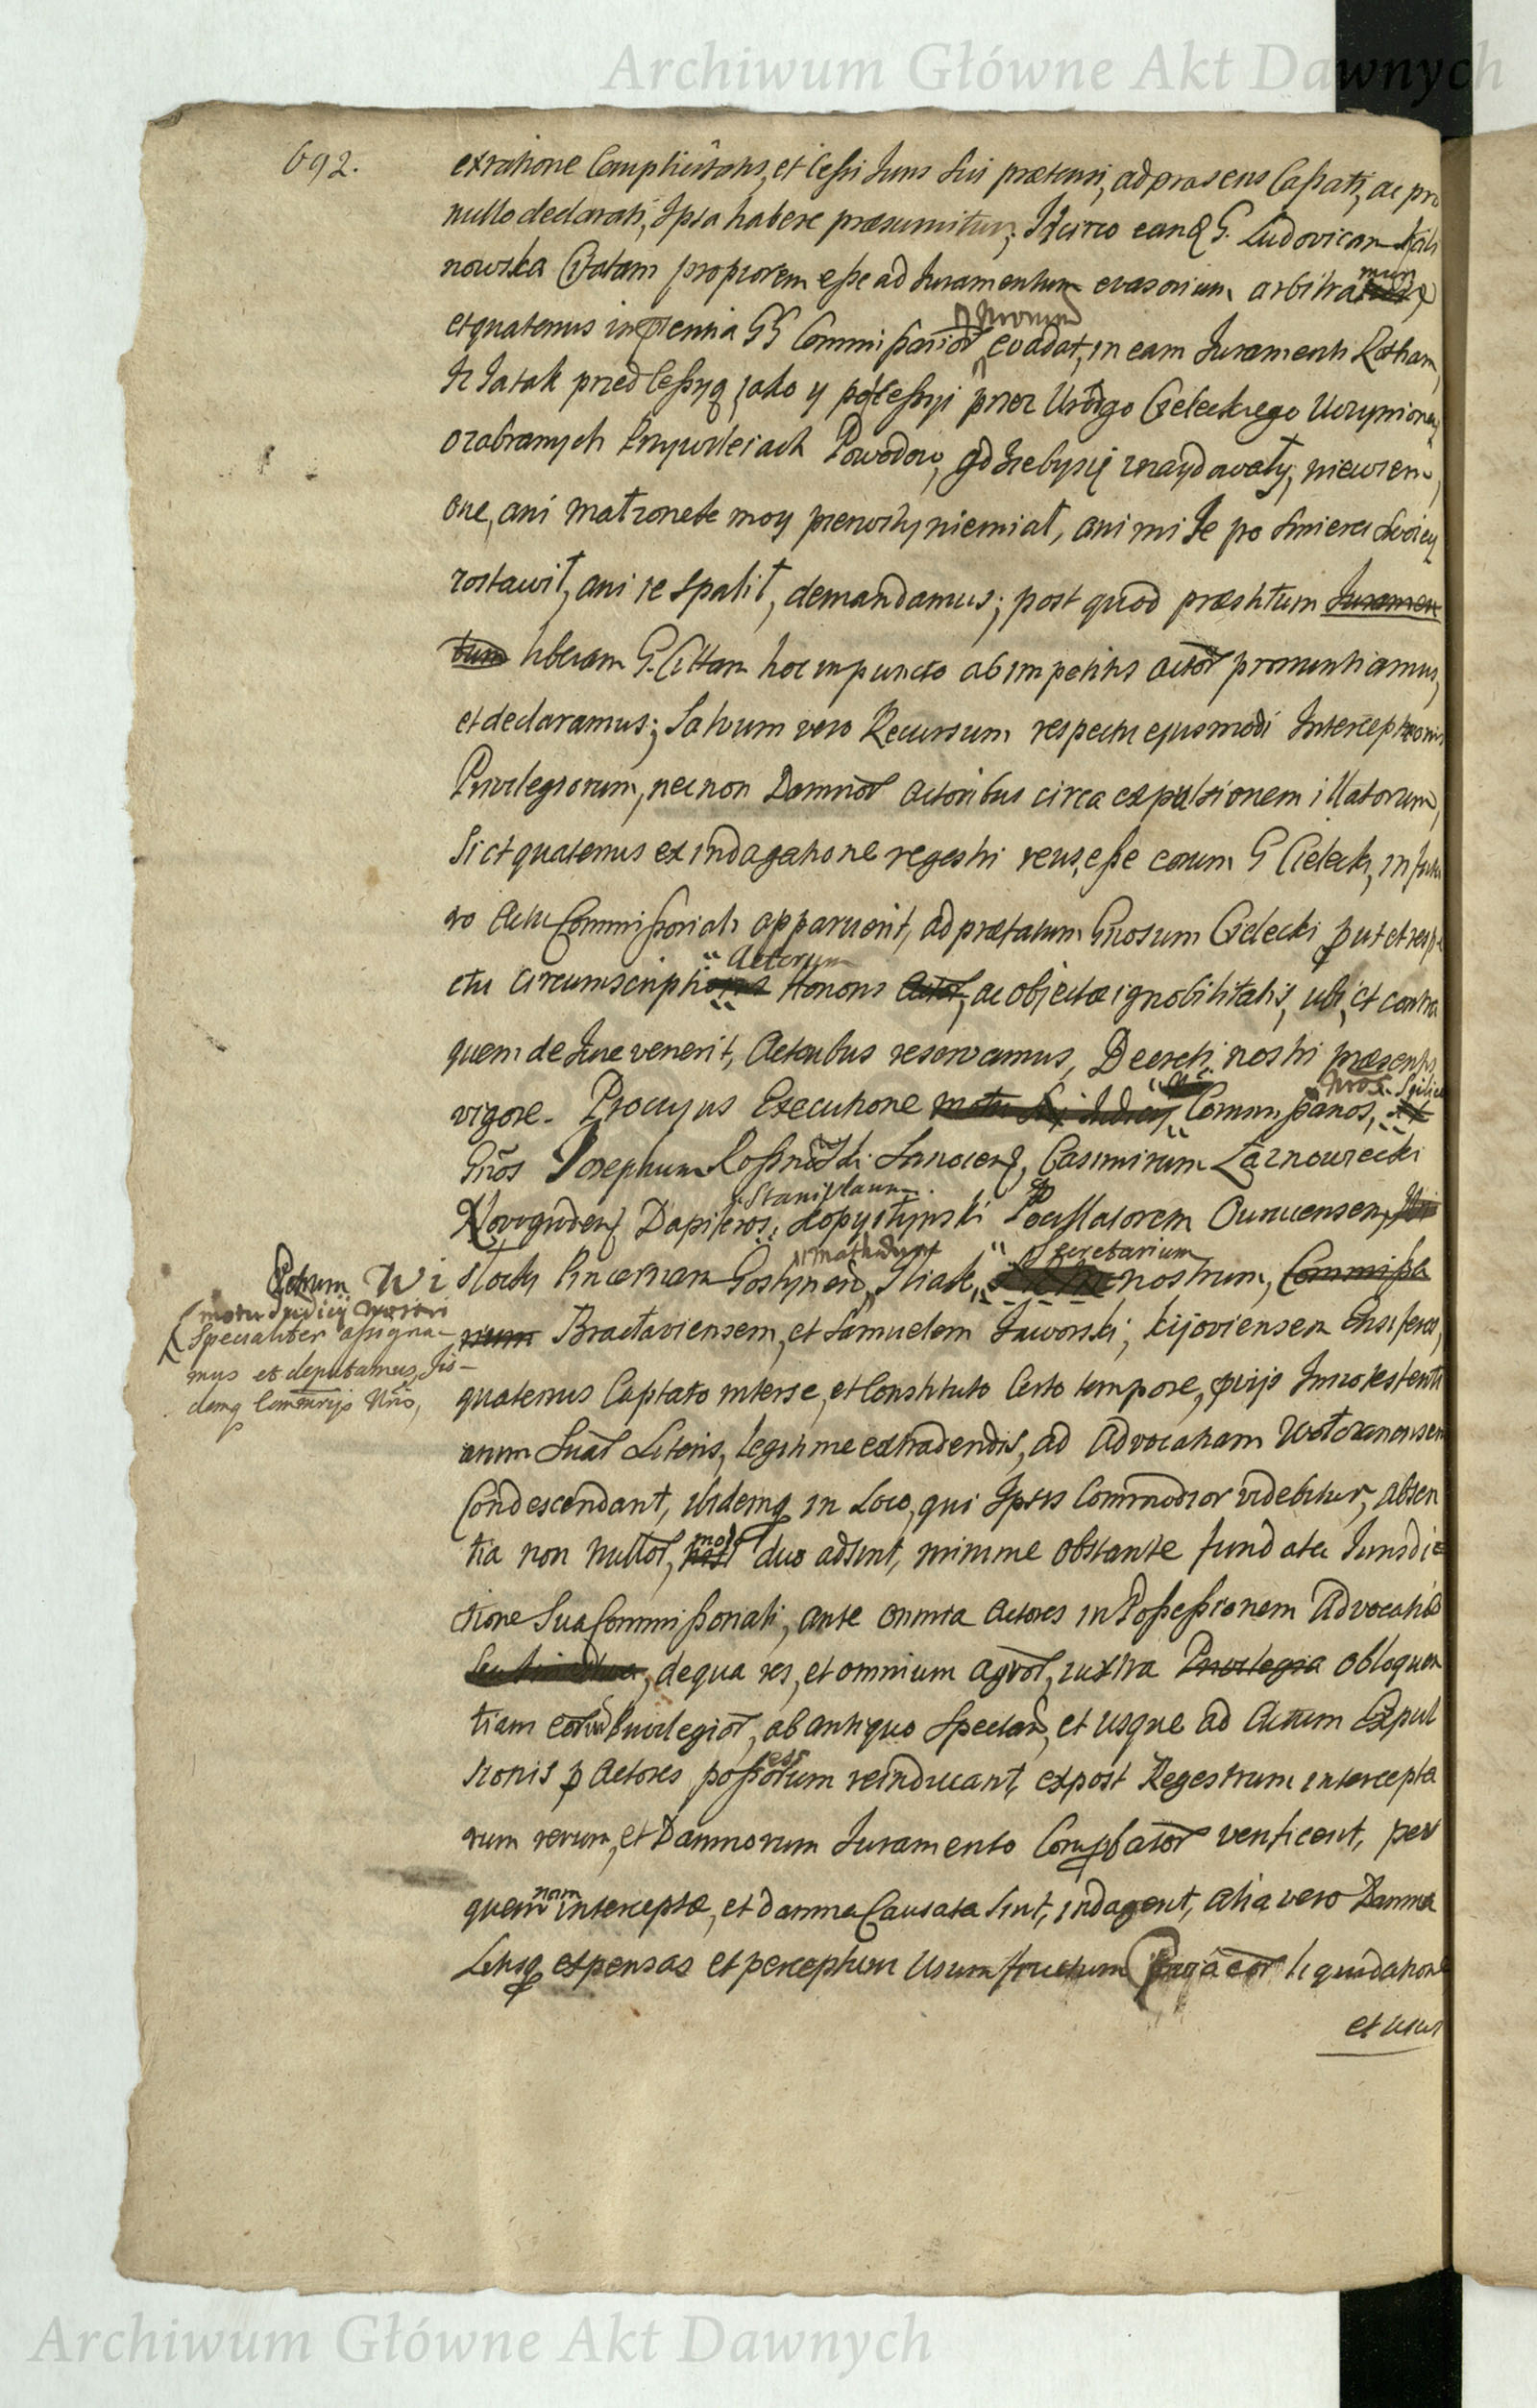 Archiwum Główne Akt Dawnych
692.
ex ratione Complicitatis, et Cessi Juris Sui prætensi, ad præsens Cassati, ac pro
nullo declarati, Ipsa habere præsumitur; Idcirco eandq G. Ludovicam Kali
nowska Citatam propiorem esse ad Juramentum evasorium arbitramur
et quatenus in præsentia GG Commissarior evadat, in eam Juramenti Rotham,
Iż Ja tak przed Cessyą, jako y po Cessyi przez Urodgo Cieleckiego Uczynioney
o zabranych Przywileiach Powodow, gdzieby się znaydowały, niewiem,
one, ani małzonek moy przerwszy niemiał, ani mi Je po Smierci Swoiey
zostawił, ani ie Spalił, demandamus; post quod præstitum Juramen
tum liberam G. Cittam hoc in puncto ab impetitis actor pronuntiamus,
et declaramus; Salvum vero Recursum respectu ejusmodi Interceptionis
Privilegiorum, nec non Damnor Actoribus circa expulsionem illatorum,
Si et quatenus ex indagatione regestri reus, esse eorum G Cielecki, in futu
ro Actu Commissoriali apparuerit, ad præfatum Gnosum Cielecki put et respe
Actorum
ctu circumscriptionis Honoris Actor, ac objectæ ignobilitatis, ubi, et contra
quem de Jure venerit, Actoribus reservamus, Decreti nostri præsentis
vigore. Pro cujus Executione Commissarios,
Gnos Josephum Sanocens, Casimirum Łaznowiecki
Stanislaum
Novogrdens Dapiferos, Łopyttynski Pocillatorem Ovrucensem,
Secretarium
Petrum Wi
stocki Pincernam Gostynens, Iliak, nostrum, Commissa
rium Braclaviensem, et Samuelem Jaworski, Kijoviensem Ensiferos,
motu Judicij nostri
Specialiter assigna
mus et deputamus, Iis
demq
quatenus Captato inter se, et Constituto Certo tempore, pvijs Innotestenti
arum Suar Literis, legitime extradendis, ad Advocatiam
Condescendant, ibidemq in Loco, qui Ipsis Commodior videbitur, absen
tia non nullor, modo duo adsint, minime obstante fundata Jurisdi
ctione Sua Commissoriali, ante omnia Actores in Possessionem Advocatiæ
de qua res, et omnium agror, iuxta Privilegia obloquen
tiam Privilegior, ab antiquo Spectan, et usque ad Actum Expul
sionis p Actores possessorum reinducant, expost Regestrum intercepta
rum rerum, et Damnorum Juramento Comprobator verificent, per
quemnam interceptæ, et damna Causata Sint, indagent, alia vero Damna
Litisq expensas et perceptum Usumfructum liquidatione
et usus
Archiwum Główne Akt Dawnych